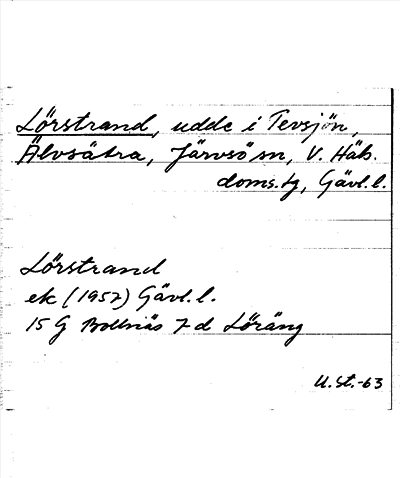 Lörstrand, udde i Tevsjön,
Älvsätra, Järvsö sn, V. Häls.
doms.tg, Gävl.l.
Lörstrand
ek (1957) Gävl.l.
15 G Bollnäs 7d Löräng
U.St.-63